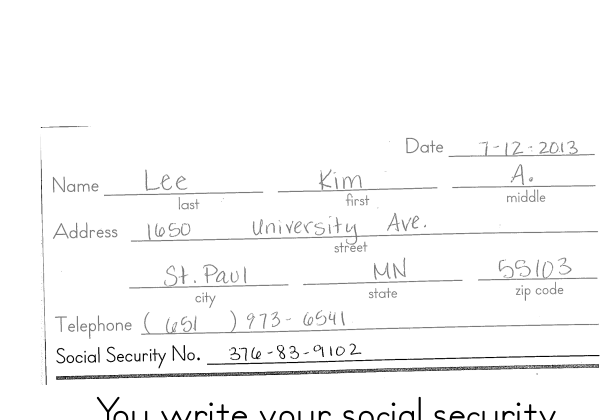 Date 7-12-2013
Name Lee Kim A.
last first middle
Address 1650 University Ave.
street
St. Paul MN 55103
city state zip code
Telephone (651) 973-6541
Social Security No. 376-83-9102
You write your social security